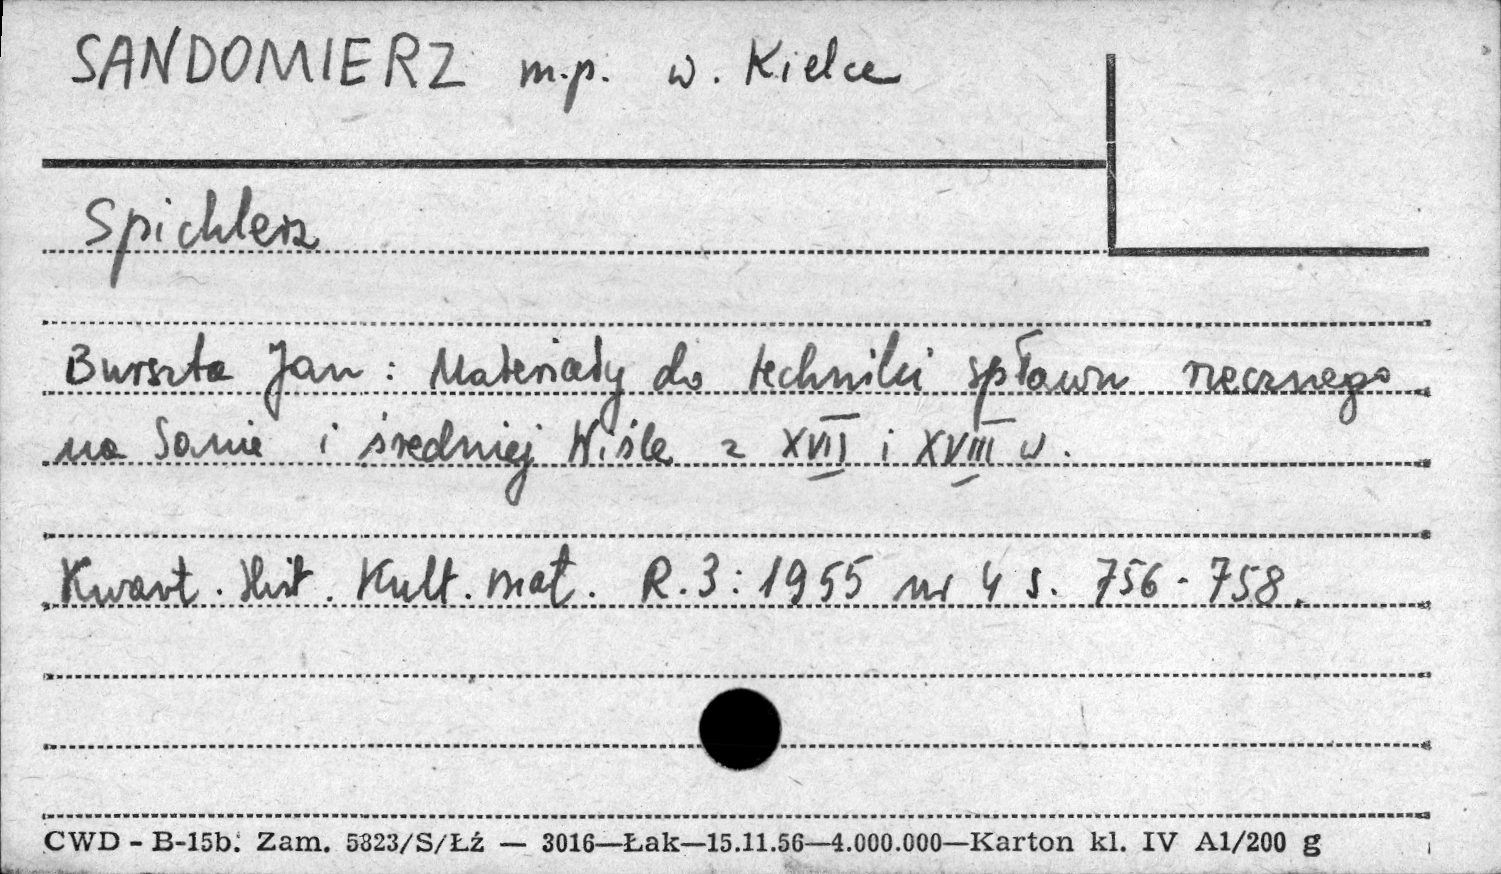 SANDOMIERZ m.p. w. Kielce
Spichlerz
Burszta Jan: Materiały do techniki spławu rzecznego
na Sanie i średniej Wiśle z XVII i XVIII w.
Kwart. Hist. Kult. mat. R.3: 1955 nr 4 s. 756-758.
CWD - B-15b. Zam. 5823/S/Łź — 3016—Łak—15.11.56—4.000.000—Karton kl. IV A1/200 g